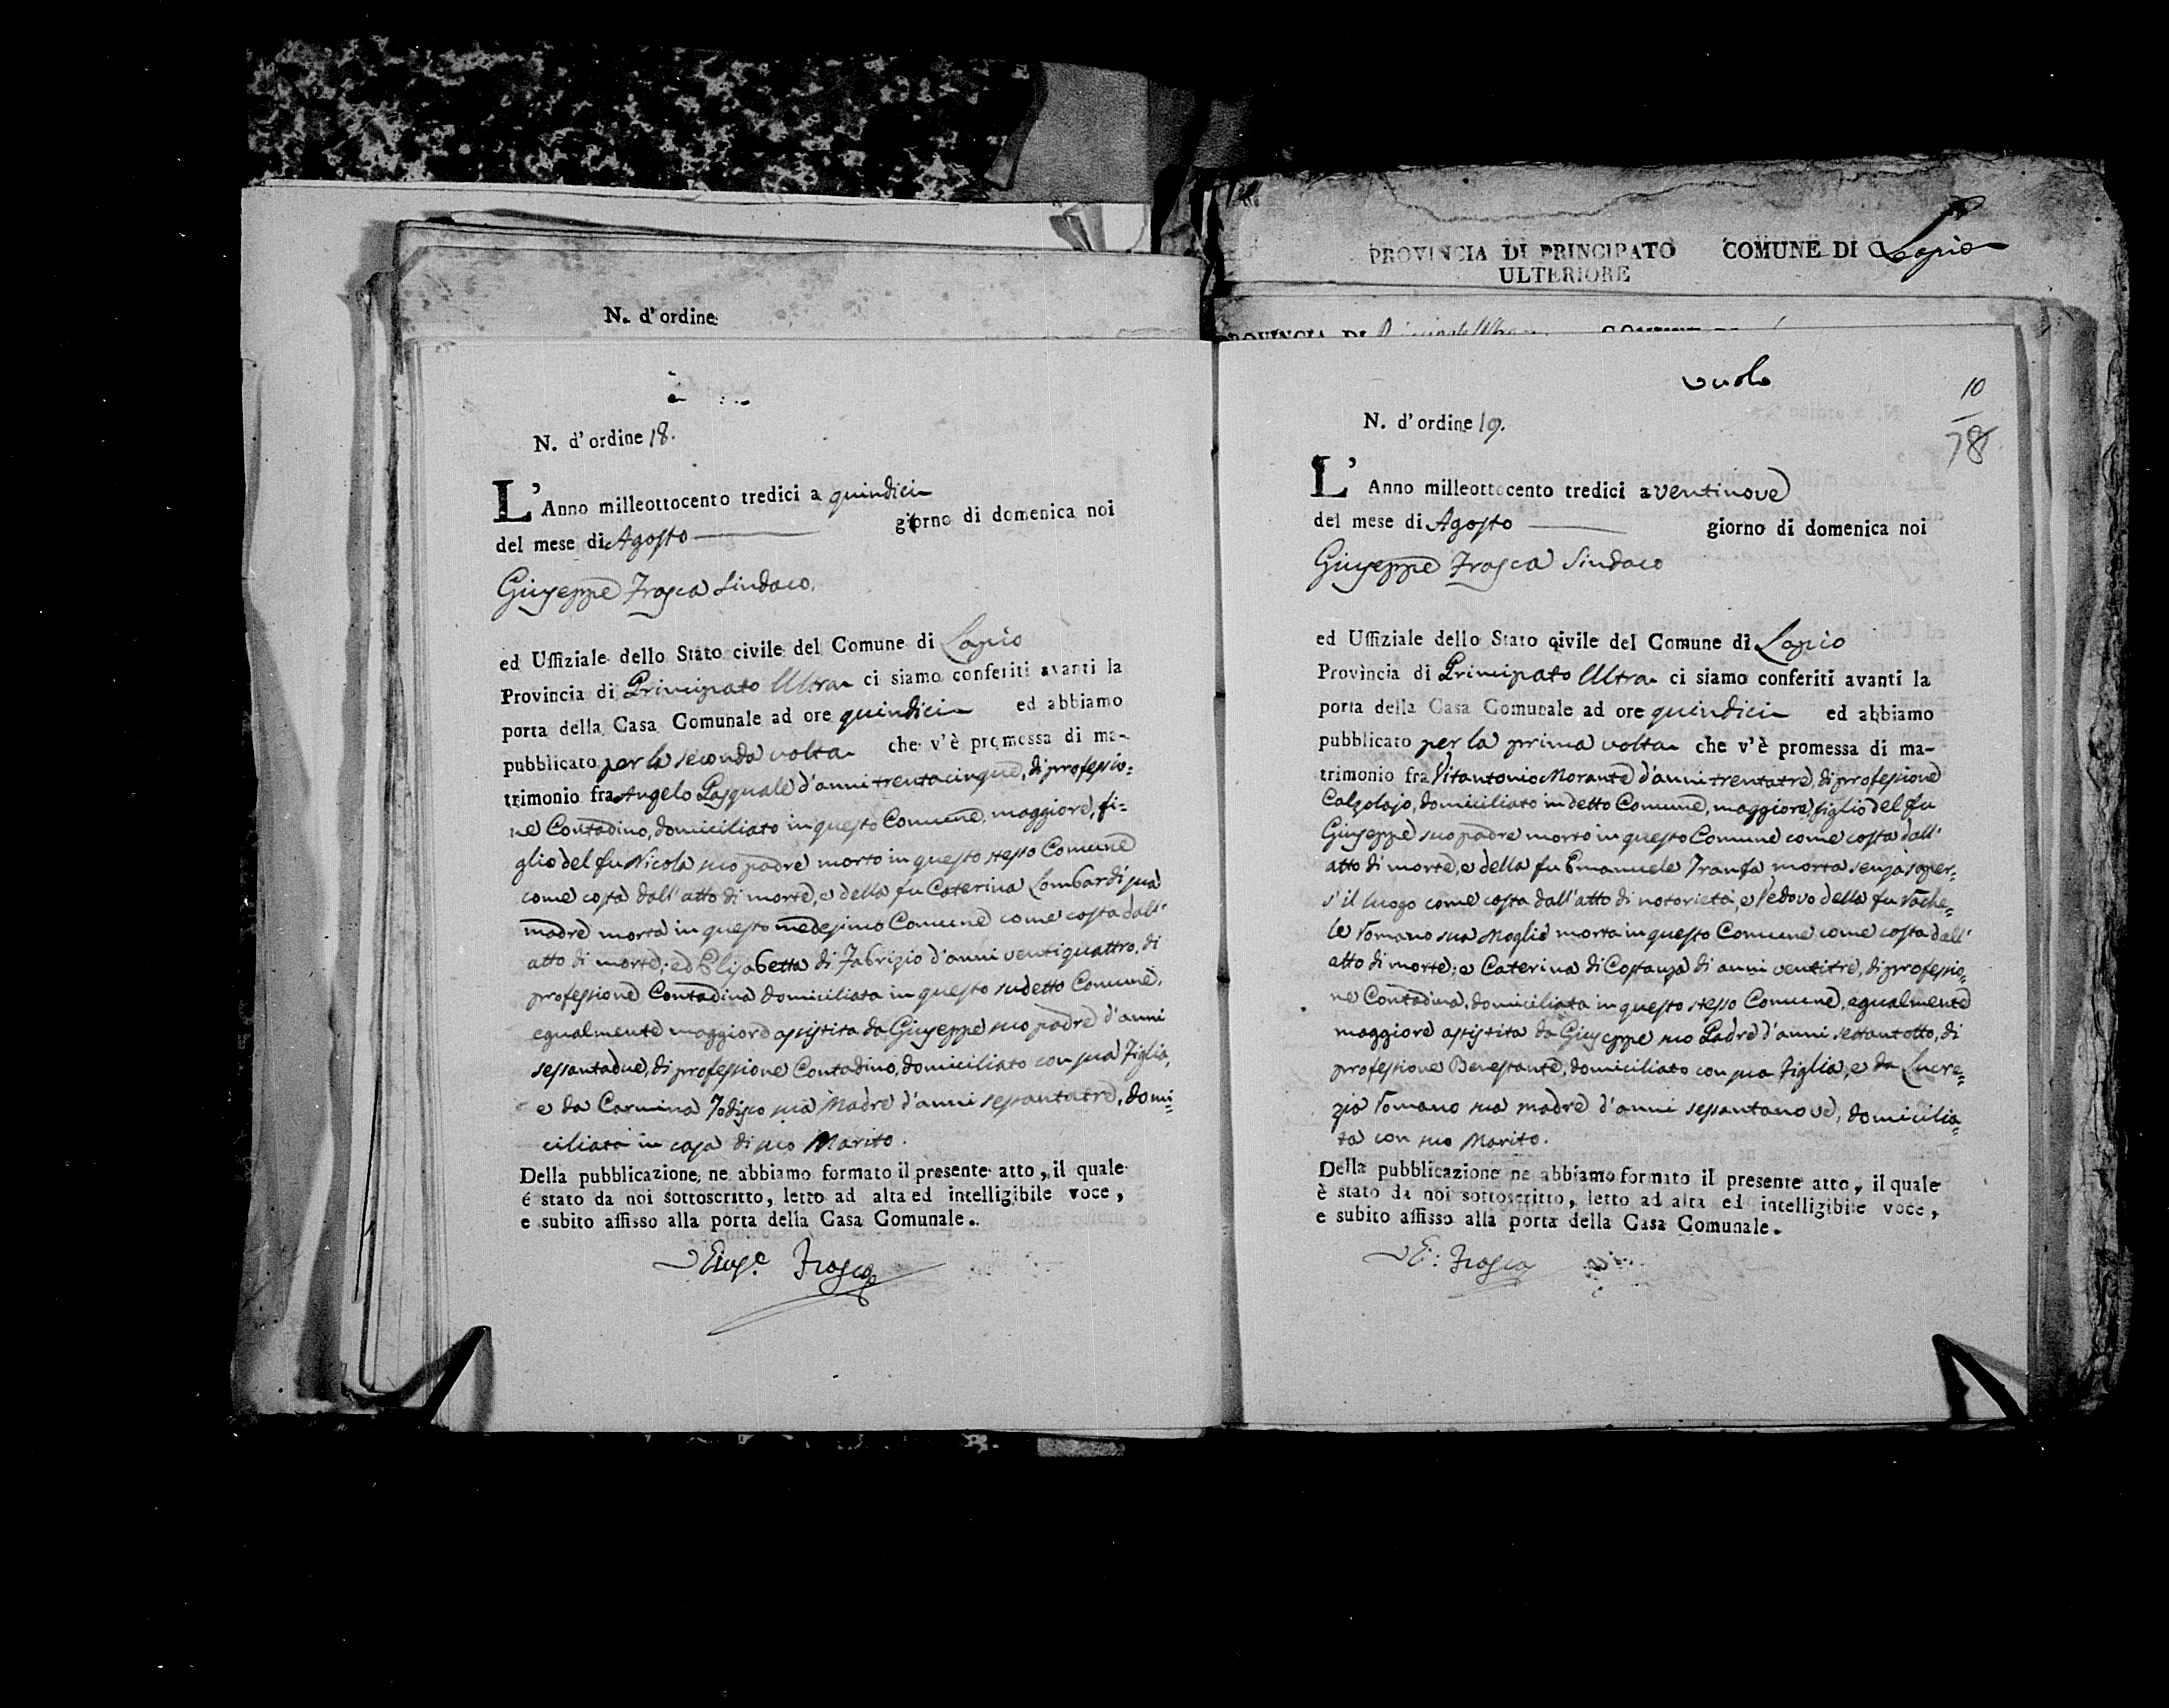 N. d'ordine
N. d'ordine 18.
L'Anno milleottocento tredici a quindici
del mese di Agosto giorno di domenica noi
Giuseppe Frasca Sindaco.
ed Uffiziale dello Stato civile del Comune di Lapio
Provincia di Principato Ultra ci siamo conferiti avanti la
porta della Casa Comunale ad ore quindici ed abbiamo
pubblicato per la seconda volta che v'è promessa di ma-
trimonio fra Angelo Pasquale d'anni trentacinque, di professio=
ne Contadino, domiciliato in questo Comune, maggiore, fi=
glio del fu Nicola suo padre morto in questo stesso Comune
come costa dall'atto di morte, e della fu Caterina Lombardi sua
madre morta in questo medesimo Comune come costa dall'
atto di morte; ed Elisabetta di Fabrizio d'anni ventiquattro, di
professione Contadina domiciliata in questo sudetto Comune,
egualmente maggiore assistita da Giuseppe suo padre d'anni
sessantadue, di professione Contadino, domiciliato con sua Figlia,
e da Carmina sua Madre d'anni sessantatre, domi=
ciliata in casa di suo Marito.
Della pubblicazione ne abbiamo formato il presente atto, il quale
é stato da noi sottoscritto, letto ad alta ed intelligibile voce,
e subito affisso alla porta della Casa Comunale.
Frasca
PROVINCIA DI PRINCIPATO COMUNE DI Lapio
ULTERIORE
PROVINCIA DI
10
78
N. d'ordine 19.
L'Anno milleottocento tredici a ventinove
del mese di Agosto giorno di domenica noi
Giuseppe Frasca Sindaco
ed Uffiziale dello Stato civile del Comune di Lapio
Provincia di Principato Ultra ci siamo conferiti avanti la
porta della Casa Comunale ad ore quindici ed abbiamo
pubblicato per la prima volta che v'è promessa di ma-
trimonio fra Vitantonio Morante d'anni trentatre, di professione
Calzolajo, domiciliato in detto Comune, maggiore, figlio del fu
Giuseppe suo padre morto in questo Comune come costa dall'
atto di morte, e della fu Emanuele Tranfa morta senza saper=
s'il luogo come costa dall'atto di notorietà, e Vedovo della fu Rache=
le Romano sua Moglie morta in questo Comune come costa dall'
atto di morte; e Caterina di Costanza di anni ventitre, di professio=
ne Contadina, domiciliata in questo stesso Comune, egualmente
maggiore assistita da Giuseppe suo Padre d'anni settantotto, di
professione Benestante, domiciliato con sua figlia, e da Lucre=
zia Romano sua madre d'anni sessantanove, domicilia=
ta con suo Marito.
Della pubblicazione ne abbiamo formato il presente atto, il quale
è stato da noi sottoscritto, letto ad alta ed intelligibile voce,
e subito affisso alla porta della Casa Comunale.
G: Frasca